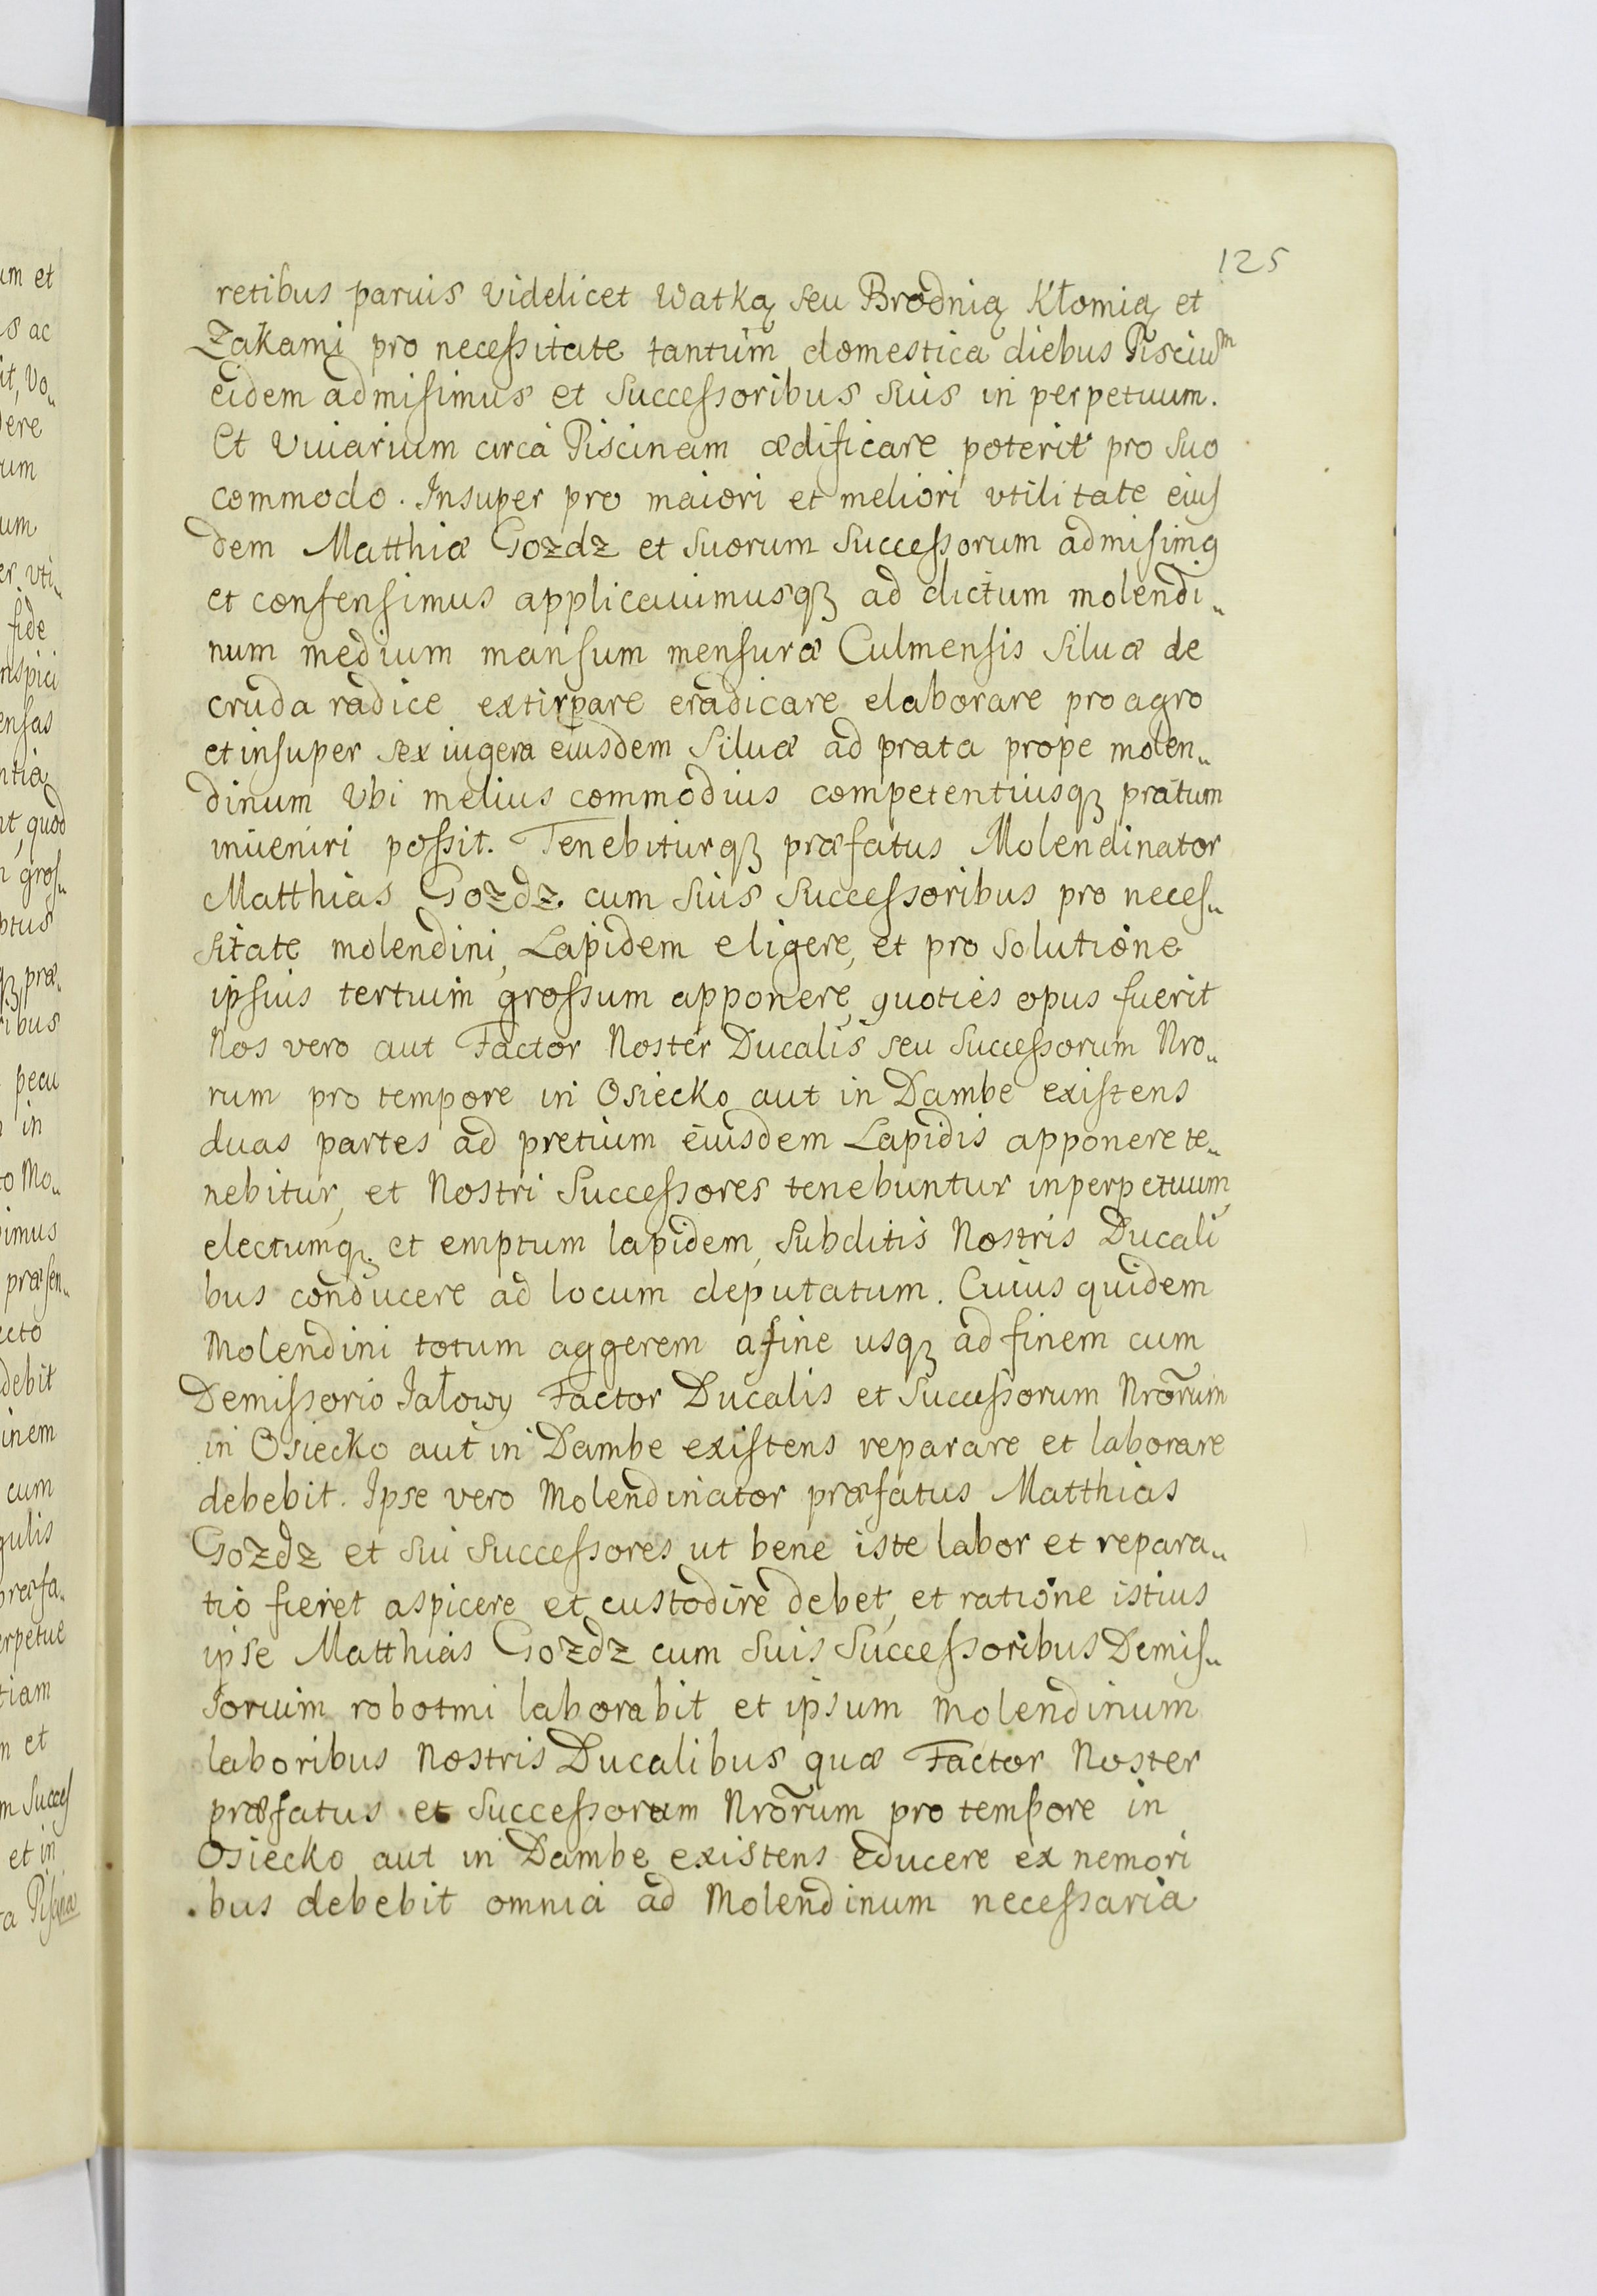 125
retibus paruis videlicet Watką seu Brodnią Kłomią et
Zakami pro necessitate tantùm domestica diebus Pisciu͞m
eidem admisimus et Successoribus suis in perpetuum.
Et Viuiarium circà Piscinam ædificare poterit pro Suo
commodo. Insuper pro maiori et meliori vtilitate eius
dem Matthiæ Gozdz et suorum Successorum admisimꝰ
et consensimus applicauimusqꝫ ad dictum molendi„
num medium mansum mensuræ Culmensis Siluæ de
cruda radice extirpare eradicare elaborare pro agro
et insuper sex iugera eiusdem Siluæ ad prata prope molen„
dinum Vbi melius commodius competentiusqꝫ pratum
inueniri possit. Tenebiturqꝫ præfatus Molendinator
Matthias Gozdz cum suis Successoribus pro neces„
sitate molendini, Lapidem eligere, et pro Solutione
ipsius tertium grossum apponere, quoties opus fuerit
Nos vero aut Factor Noster Ducalis seu Successorum Nro„
rum pro tempore in Osiecko aut in Dambe existens
duas partes ad pretium eiusdem Lapidis apponere te„
nebitur, et Nostri Successores tenebuntur in perpetuum,
electumqꝫ et emptum lapidem, Subditis Nostris Ducali
bus conducere ad locum deputatum. Cuius quidem
Molendini totum aggerem a fine usqꝫ ad finem cum
Demissorio Jałowy Factor Ducalis et Successorum Nrõrum
in Osiecko aut in Dambe existens reparare et laborare
debebit. Ipse vero Molendinator præfatus Matthias
Gozdz et sui Successores ut bene iste labor et repara„
tio fieret aspicere et custodire debet, et ratione istius
ipse Matthias Gozdz cum Suis Successoribus Demis„
sorium robotmi laborabit et ipsum Molendinum
laboribus Nostris Ducalibus quæ Factor Noster
præfatus et Successorum Nrõrum pro tempore in
Osiecko aut in Dambe existens educere ex nemori
bus debebit omnia ad Molendinum necessaria